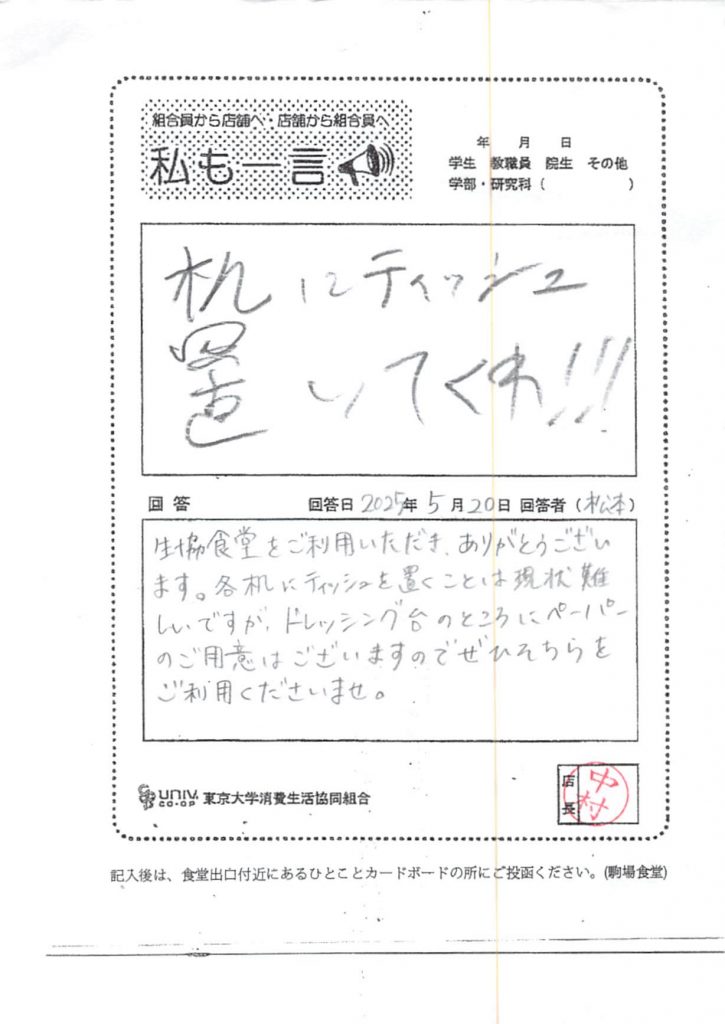 組合員から店舗へ・店舗から組合員へ
私も一言
年 月 日
学生 教職員 院生 その他
学部・研究科( )
机にティッシュ
置いてくれ!!!
回答 回答日 2025年 5月20日 回答者(松本)
生協食堂をご利用いただき、ありがとうござい
ます。各机にティッシュを置くことは現状難
しいですが、ドレッシング台のところにペーパー
のご用意はございますのでぜひそちらを
ご利用くださいませ。
UNIV. CO-OP 東京大学消費生活協同組合
店長 中村
記入後は、食堂出口付近にあるひとことカードボードの所にご投函ください。(駒場食堂)